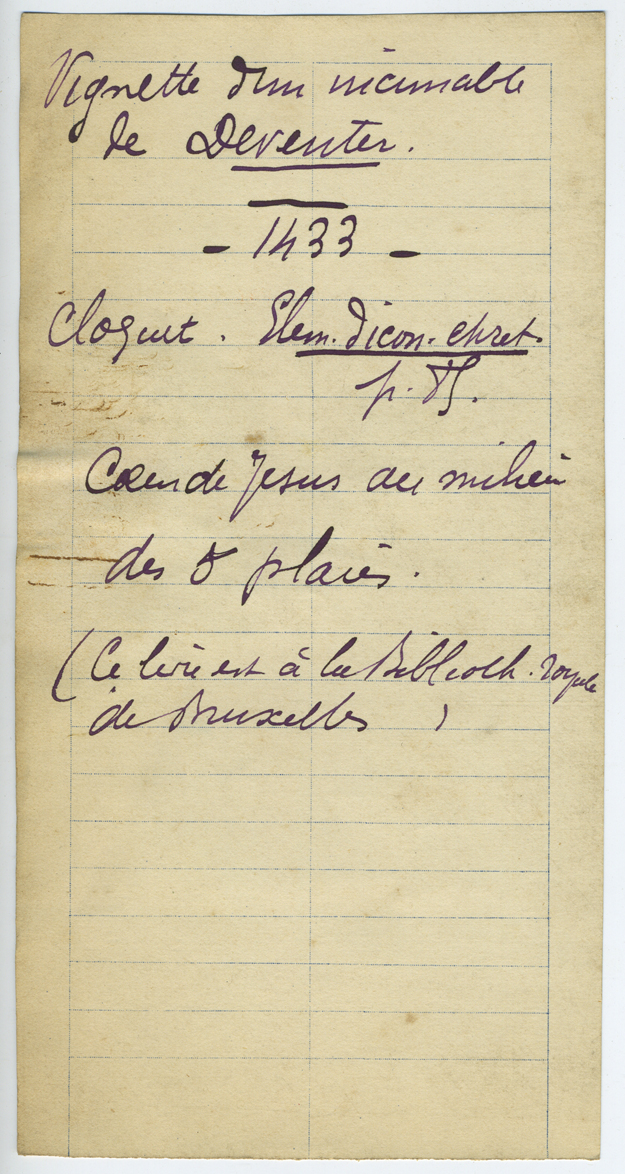 Vignette d'un incunable
de Deventer.
- 1433 -
Cloquet. Elem. d'icon. chret.
p. 85.
Coeur de Jesus au milieu
des 5 plaies.
(Ce livre est à la Biblioth. royale
de Bruxelles )